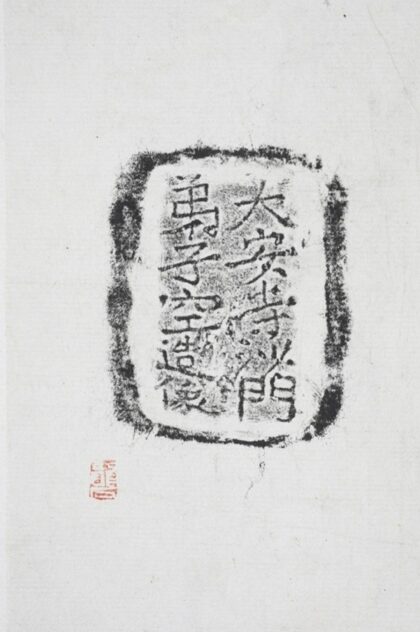 大安寺沙門
子空造像